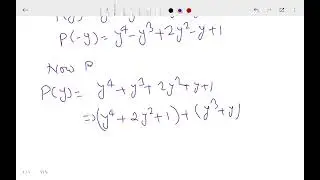 P(-y) = y⁴ - y³ + 2y² - y + 1
Now P
P(y) = y⁴ + y³ + 2y² + y + 1
=> (y⁴ + 2y² + 1) + (y³ + y)